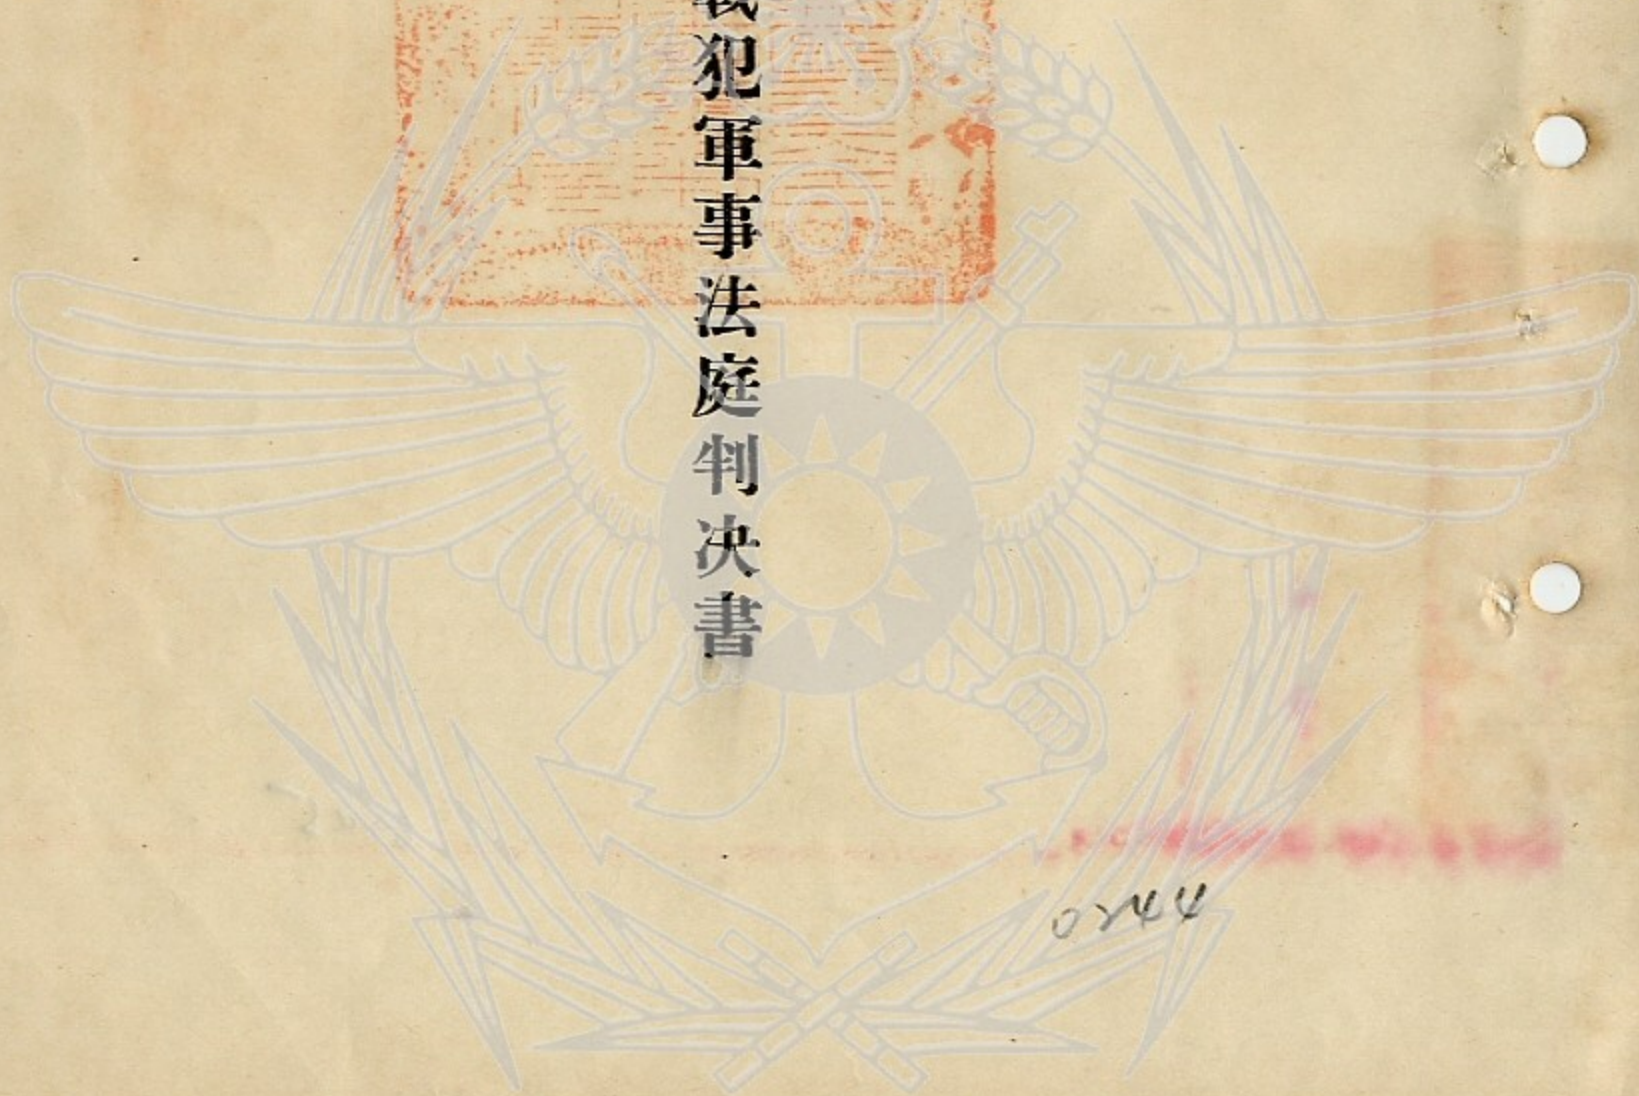 戰犯軍事法庭判决書
0244